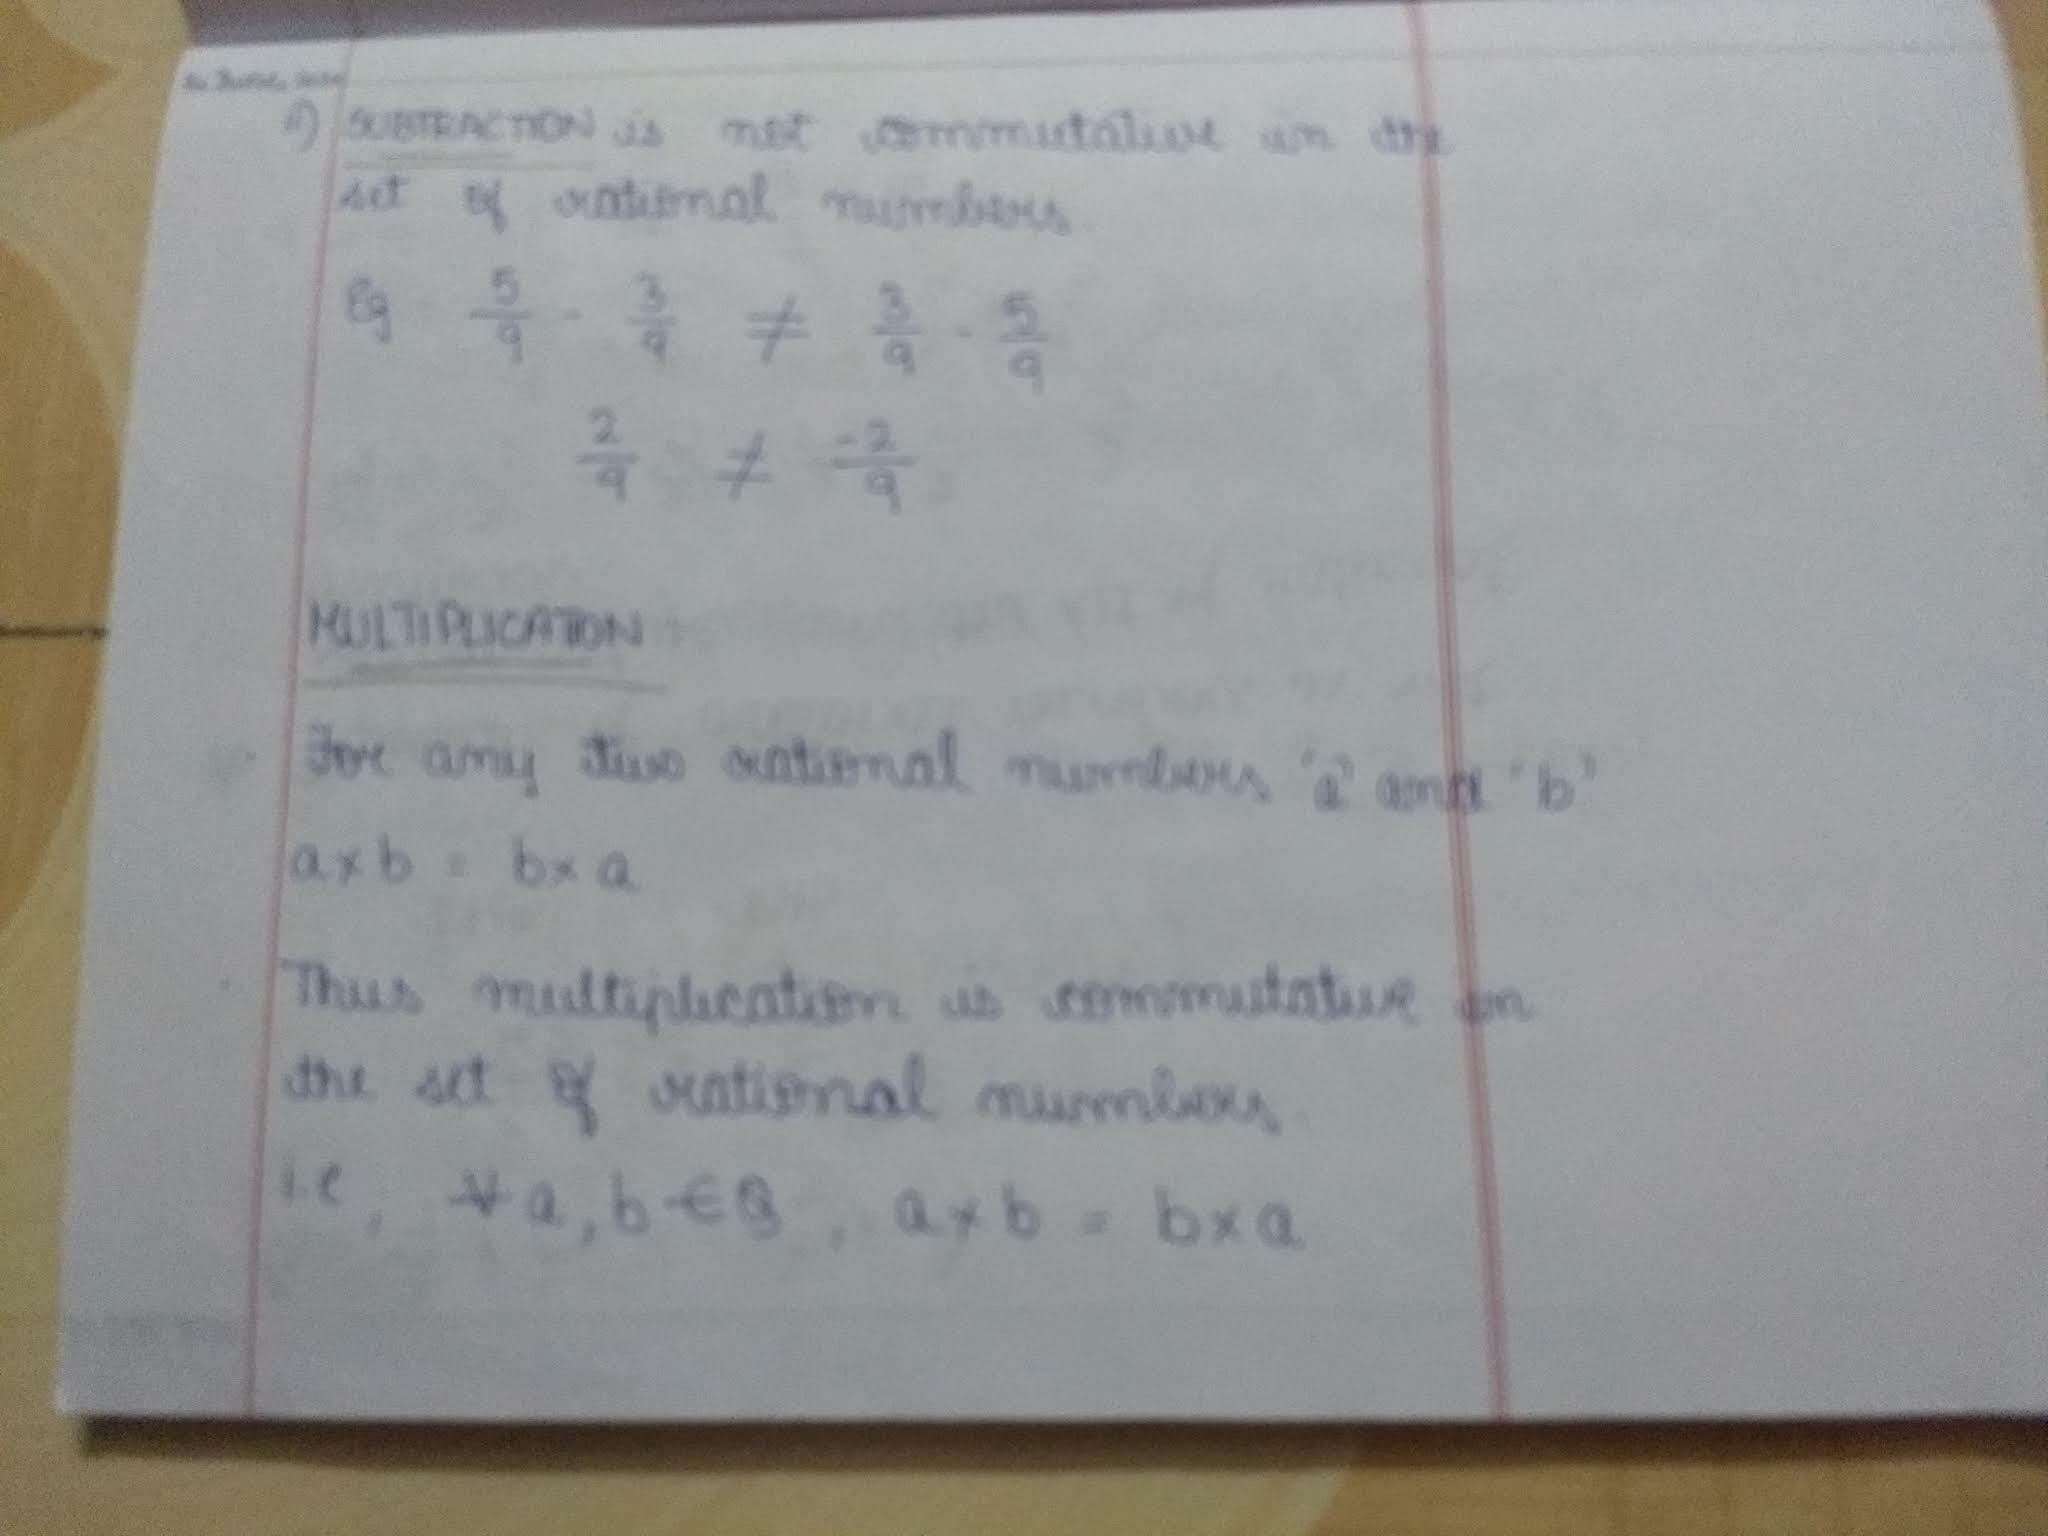 SUBTRACTION is not commutative in the
set of rational numbers
Eg - 5/9 - 3/9 ≠ 3/9 - 5/9
2/9 ≠ -2/9
MULTIPLICATION
For any two rational numbers 'a' and 'b'
a×b = b×a
Thus multiplication is commutative in
the set of rational numbers.
i.e, ∀ a, b ∈ Q, a×b = b×a